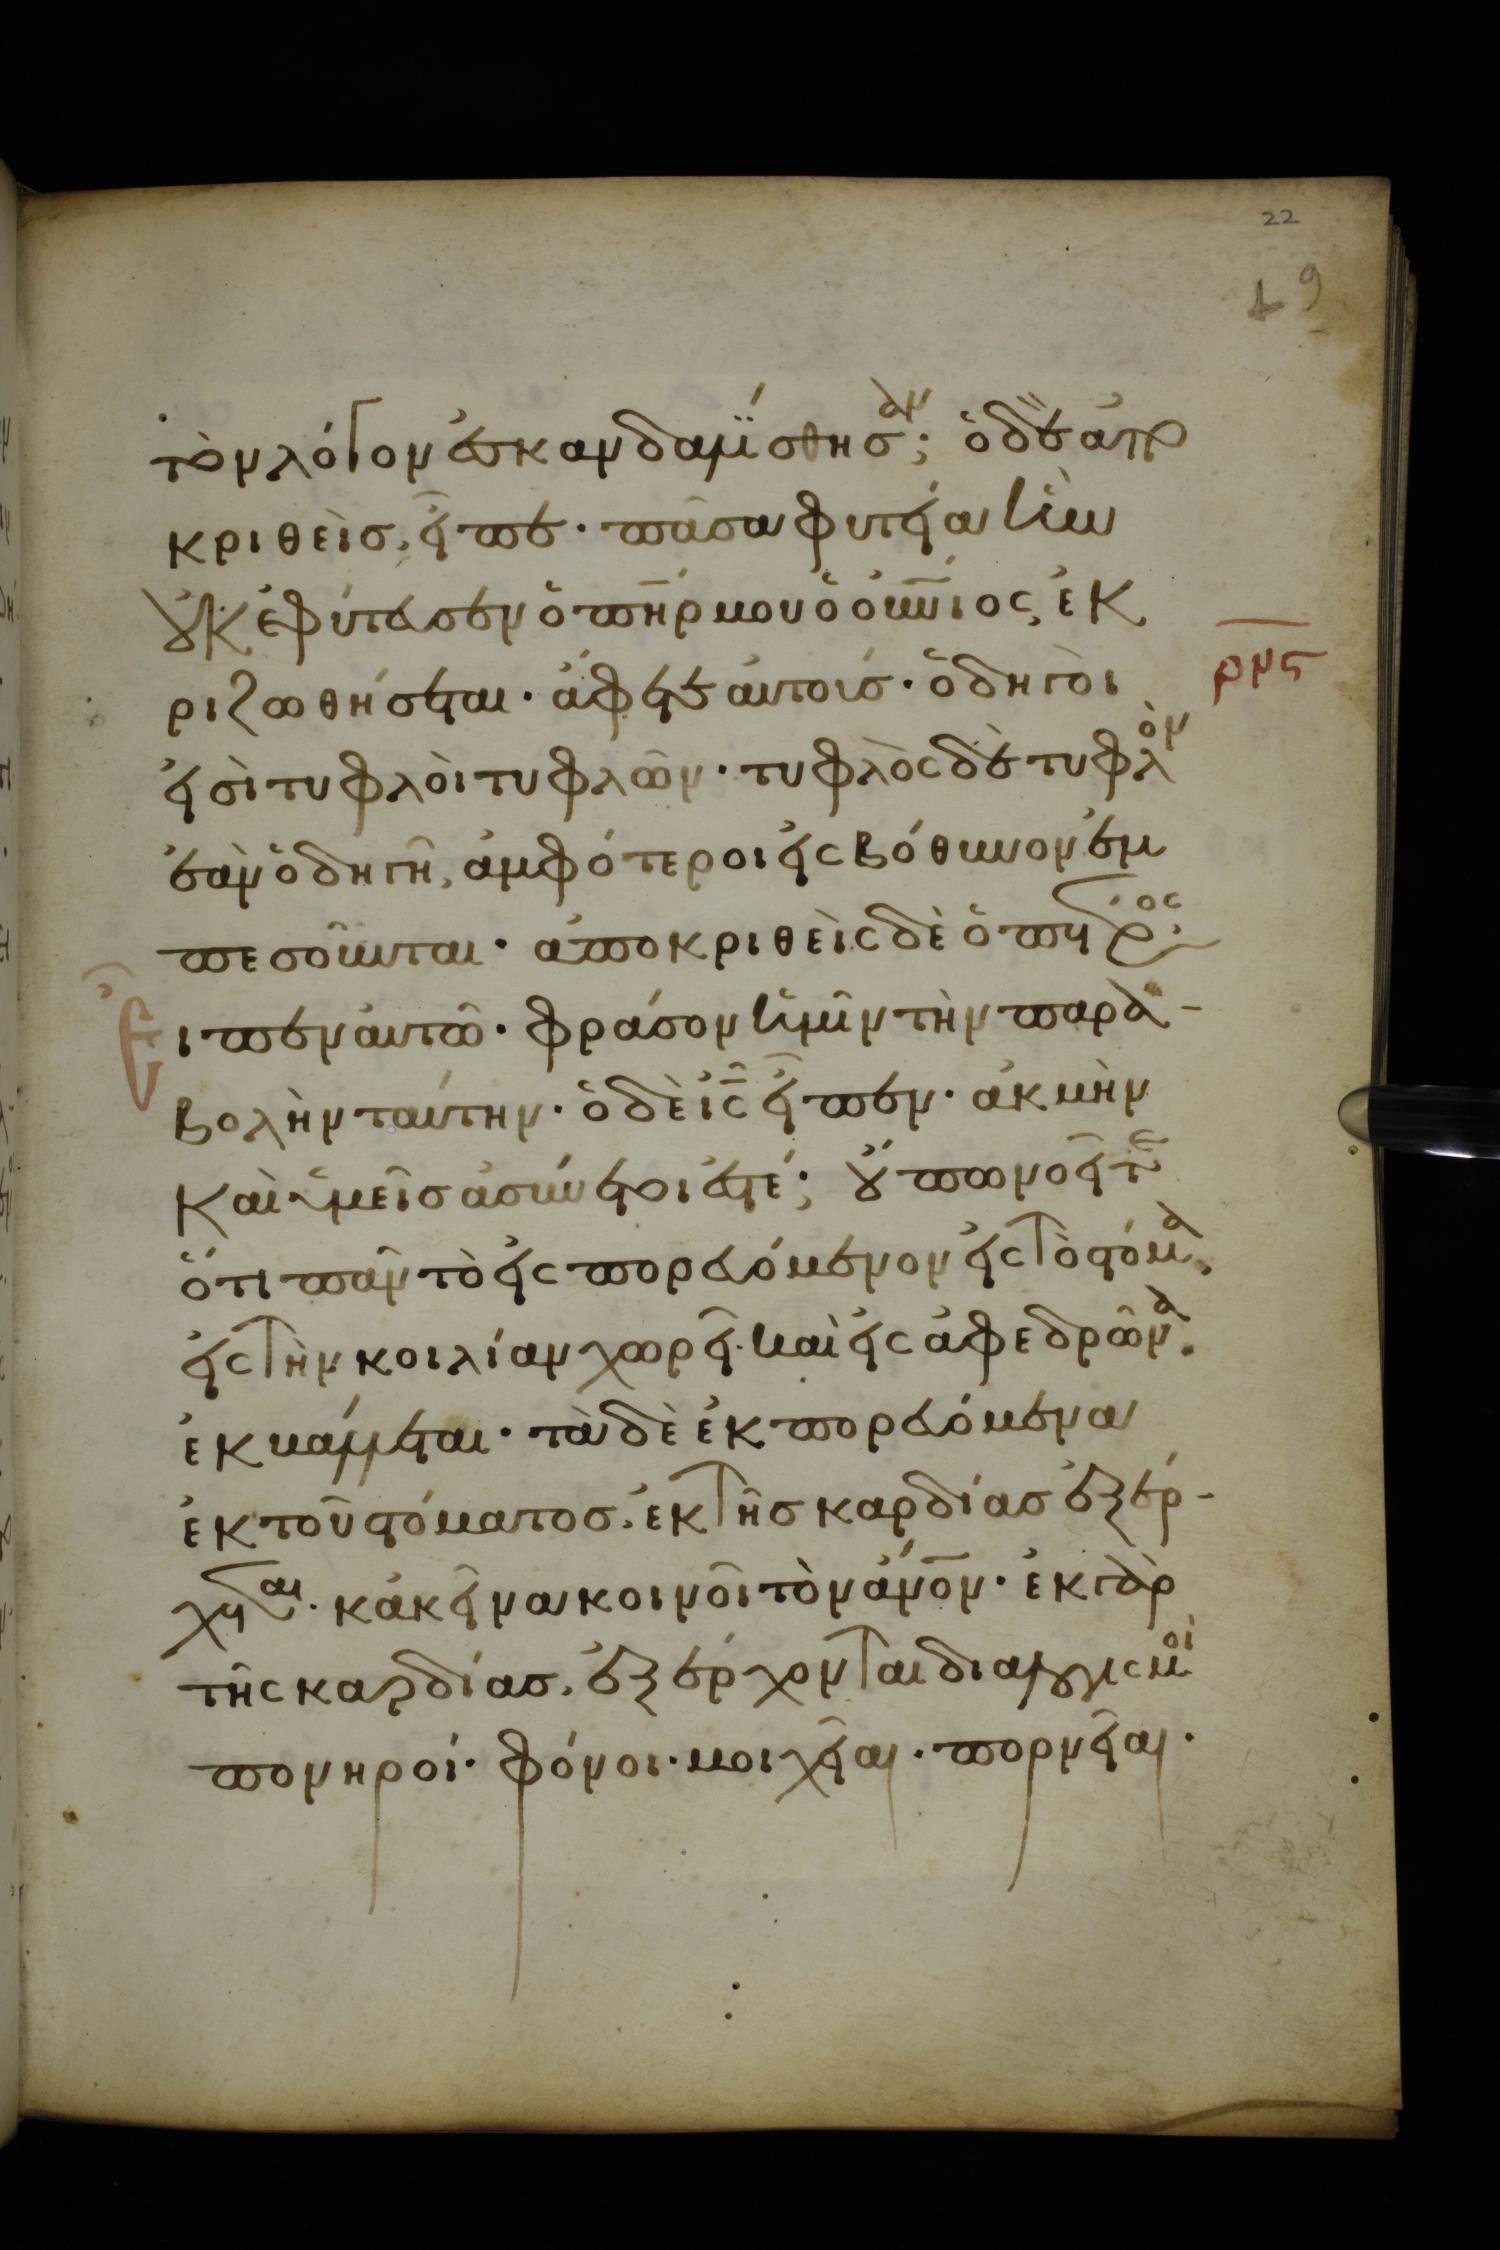 22
49
τὸν λόγον ἐσκανδαλίσθησαν; ὁ δὲ ἀπο
κριθεὶσ, εἶπε· πᾶσα φυτεία ἣν
οὐκ ἐφύτευσεν ὁ πη̅ρ μου ὁ οὐν̅ιος, ἐκ
ριζωθήσεται· ἄφετε αὐτούσ· ὁδηγοὶ
ρμϛ
εἰσὶ τυφλοὶ τυφλῶν· τυφλὸς δὲ τυφλὸν
ἐὰν ὁδηγῆ, ἀμφότεροι εἰς βόθυνον ἐμ
πεσοῦνται· ἀποκριθεὶς δὲ ὁ πέτρος
Εἶ
ιπεν αὐτῶ· φράσον ἡμῖν τὴν παρα-
βολὴν ταύτην· ὁ δὲ ἰς̅ εἶπεν· ἀκμὴν
καὶ ὑμεῖσ ἀσύνετοι ἐστέ; οὔπω νοεῖτε
ὅτι πᾶν τὸ εἰσπορευόμενον εἰς τὸ στόμα,
εἰς τὴν κοιλίαν χωρεῖ· καὶ εἰς ἀφεδρῶνα,
ἐκβάλλεται· τὰ δὲ ἐκπορευόμενα
ἐκ τοῦ στόματοσ, ἐκ τῆσ καρδίασ ἐξέρ-
χεται· κἀκεῖνα κοινοῖ τὸν ἄνο̅ν· ἐκ γὰρ
τῆς καρδίασ, ἐξέρχονται διαλογισμοὶ
πονηροί· φόνοι· μοιχεῖαι· πορνεῖαι·